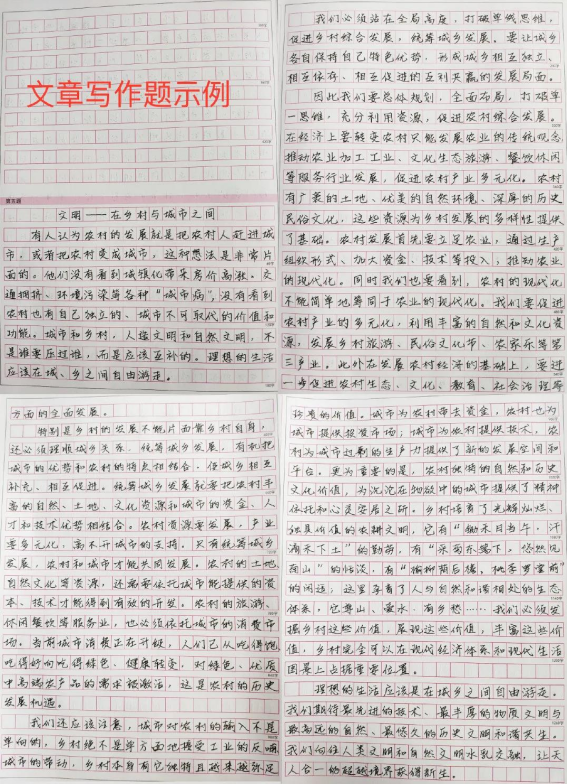 文章写作题示例
第五题
文明——在乡村与城市之间
有人认为农村的发展就是把农村人赶进城
市，或者把农村变成城市，这种想法是非常片
面的。他们没有看到城镇化带来房价高涨、交
通拥挤、环境污染等各种“城市病”，没有看到
农村也有自己独立的、城市不可取代的价值和
功能。城市和乡村，人造文明和自然文明，不
是谁要压过谁，而是应该互补的。理想的生活
应该在城、乡之间自由游走。
我们必须站在全局高度，打破单线思维，
促进乡村综合发展，统筹城乡发展。要让城乡
各自保持自己特色优势，形成城乡相互独立、
相互依存、相互促进的互利共赢的发展局面。
因此我们要总体规划，全面布局，打破单
一思维，充分利用资源，促进农村综合发展。
在经济上要转变农村只能发展农业的传统观念，
推动农业加工工业、文化生态旅游、餐饮休闲
等服务行业发展，促进农村产业多元化。农村
有广袤的土地、优美的自然环境、深厚的历史
民俗文化，这些资源为乡村发展的多样性提供
了基础。农村发展首先要立足农业，通过生产
组织形式、加大资金、技术等投入，推动农业
的现代化。同时我们也要看到，农村的现代化
不能简单地等同于农业的现代化。我们要促进
农村产业的多元化，利用丰富的自然和文化资
源，发展乡村旅游、民俗文化节、农家乐等第
三产业。此外在发展农村经济的基础上，要进
一步促农村生态、文化、教育、社会治理等
方面的全面发展。
特别是乡村的发展不能片面靠乡村自身，
还必须理顺城乡关系，统筹城乡发展，有机把
城市的优势和农村的特点相结合，使城乡相互
补充、相互促进。统筹城乡发展就要把农村丰
富的自然、土地、文化资源和城市的资金、人
才和技术优势相结合。农村资源要发展，产业
要多元化，离不开城市的支持，只有统筹城乡
发展，农村和城市才能共同发展。农村的土地、
自然文化等资源，还需要依托城市能提供的资
本、技术才能得到有效的开发。农村的旅游、
休闲餐饮等服务业，也必须依托城市的消费市
场。当前城市消费正在升级，人们已从吃得饱
吃得好向吃得绿色、健康转变，对绿色、优质
中高端农产品的需求被激活，这是农村的历史
发展机遇。
我们还应该注意，城市对农村的输入不是
单向的，乡村绝不是单方面地接受工业的反哺
城市的带动，乡村本身有它独特且越来越弥足
珍贵的价值。城市为农村带去资金，农村也为
城市提供投资市场；城市为农村提供技术，农
村为城市过剩的生产力提供了新的发展空间和
平台。更为重要的是，农村独特的自然和历史
文化价值，为沉沦在物欲中的城市提供了精神
依托和心灵安居之所。乡村培育了光辉灿烂、
独具价值的农耕文明，它有“锄禾日当午，汗
滴禾下土”的勤劳，有“采菊东篱下，悠然见
南山”的恬淡，有“榆柳荫后檐，桃李罗堂前”
的闲适；这里孕育了人与自然和谐相处的生态
体系，它靠山、爱水、有乡愁……我们必须发
掘乡村这些价值，展现这些价值，丰富这些价
值，乡村完全可以在现代经济体系和现代生活
图景上占据重要位置。
理想的生活应该是在城乡之间自由游走。
我们期待最先进的技术、最丰厚的物质文明与
最高远的自然、最悠久的历史文明和谐共生。
我们向往人类文明和自然文明水乳交融，让天
人合一的超越境界获得新生。